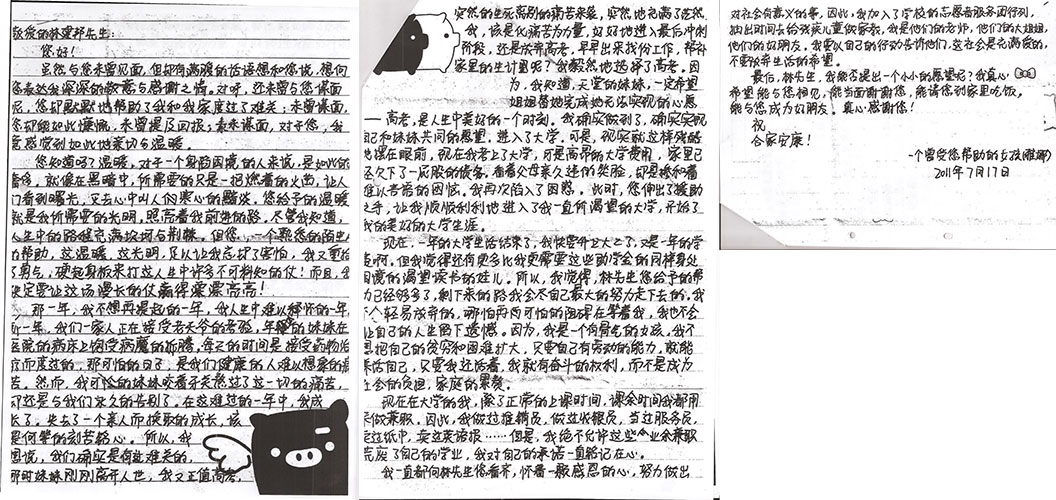 敬爱的林建邦先生:
您好!
虽然与您未曾见面,但却有满腹的话语想和您说,想向
您表达我深深的敬意与感谢之情。对呀,还未曾与您谋面
呢,您却默默地帮助了我和我家度过了难关;未曾谋面,
您却能如此慷慨,未曾提及回报;素未谋面,对于您,我
竟感觉到如此地亲切与温暖。
您知道吗?温暖,对于一个身陷困境的人来说,是如此的
奢侈。就像在黑暗中,所需要的只是一把燃着的火苗,让人
们看到曙光,又去心中叫人们来心的黯淡。您给予的温暖
就是我所需要的光明,照亮着我前进的路,尽管我知道,
人生中的路程充满坎坷与荆棘。但您,一个熟悉的陌生
的帮助,这温暖,这光明,足以让我忘却了害怕,我又重拾
了勇气,硬起身板来打这人生中许多不可料知的仗!而且,
决定要让这场漫长的仗赢得漂漂亮亮!
那一年,我不想再提起的一年,我人生中难以释怀的一年
那一年,我们一家人正在接受老天爷的考验,年幼的妹妹在
医院的病床上饱受病魔的折腾,每天的时间是接受药物治
疗而度过的,那可怕的日子,是我们健康的人难以想象的痛
苦。然而,我可怜的妹妹咬着牙关熬过了这一切的痛苦,
却还是与我们永久的告别了。在这难过的一年中,我成
长了。失去了一个亲人而换取的成长,该
是何等的刻苦铭心。所以,我
困说,我们确实是有些难关的,
那时妹妹刚刚离开人世,我又正值高考,
突然的生死离别的痛苦来袭,突然地充满了茫然
我,该是化痛苦为力量,好好地进入最后冲刺
阶段,还是放弃高考,早早出来找份工作,帮补
家里的生计呢?我毅然地选择了高考。因
为,我知道,天堂的妹妹,一定希望
姐姐替她完成她无法实现的心愿
——高考,是人生中美好的一个时刻。我确实做到了,确实实现
和妹妹共同的愿望,进入了大学。可是,现实就这样残酷
地摆在眼前,现在我考上了大学,可是高昂的大学费用,家里已
经欠下了一屁股的债务。看着父母来久违的笑脸,却是掺和着
难以言喻的困恼,我再次陷入了困惑。此时,您伸出了援助
之手,让我顺顺利利地进入了我一直所渴望的大学,开始了
我的美好的大学生涯。
现在,一年的大学生活结束了,我快要升上大二了,又是一年的学
费啊。但我觉得还有更多比我更需要这些助学金的同样身处
困境的渴望读书的娃儿。所以,我觉得,林先生您给予的帮
助已经够多了,剩下来的路我会尽自己最大的努力走下去的。我
不会轻易放弃的,哪怕再两可怕的阻碍在等着我,我也不会
让自己的人生留下遗憾。因为,我是一个有骨气的女孩。我不
想把自己的贫穷和困难扩大,只要自己有劳动的能力,就能
养活自己,只要我还活着,我就有奋斗的权利,而不是成为
社会的负担,家庭的累赘。
现在在大学的我,除了正常的上课时间,课余时间我都用
来做兼职。因此,我做过推销员,做过收银员,当过服务员,
卖过纸巾,卖过英语报……但是,我绝不允许这些业余兼职
荒废了自己的学业,我对自己的承诺一直铭记在心。
我一直都向林先生您看齐,怀着一颗感恩的心,努力做出
对社会有意义的事,因此,我加入了学校的志愿者服务团行列,
抽出时间去给残疾儿童做家教,我是他们的老师,他们的大姐姐,
他们的好朋友。我要以自己的行动告诉他们,这社会是充满爱的,
不要放弃生活的希望。
最后,林先生,我能否提出一个小小的愿望呢?我真心
希望能与您相见,能当面谢谢您,能请您到家里吃饭,
能与您成为好朋友。真心感谢您!
祝
合家安康!
一个曾受您帮助的女孩(雅娜)
2011年7月17日